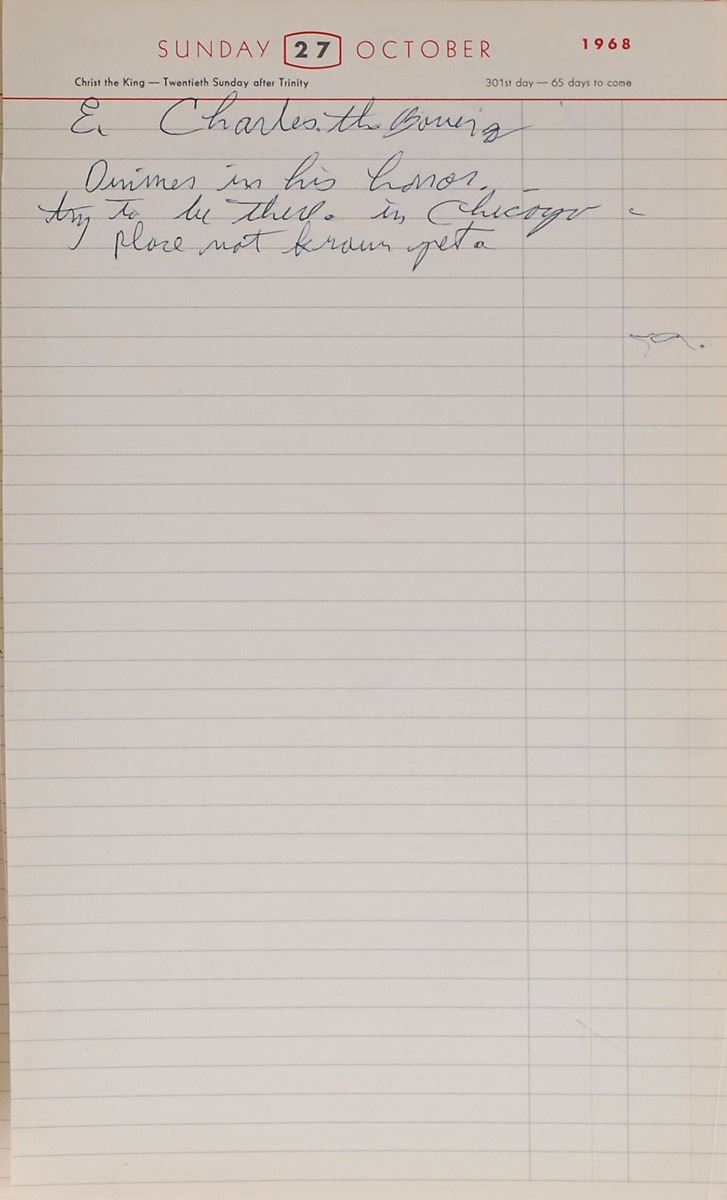 SUNDAY 27 OCTOBER 1968
Christ the King — Twentieth Sunday after Trinity 301st day — 65 days to come
E. Charles. th. Bowers
Dinner in his honor.
try to be there. in Chicago
place not known yet